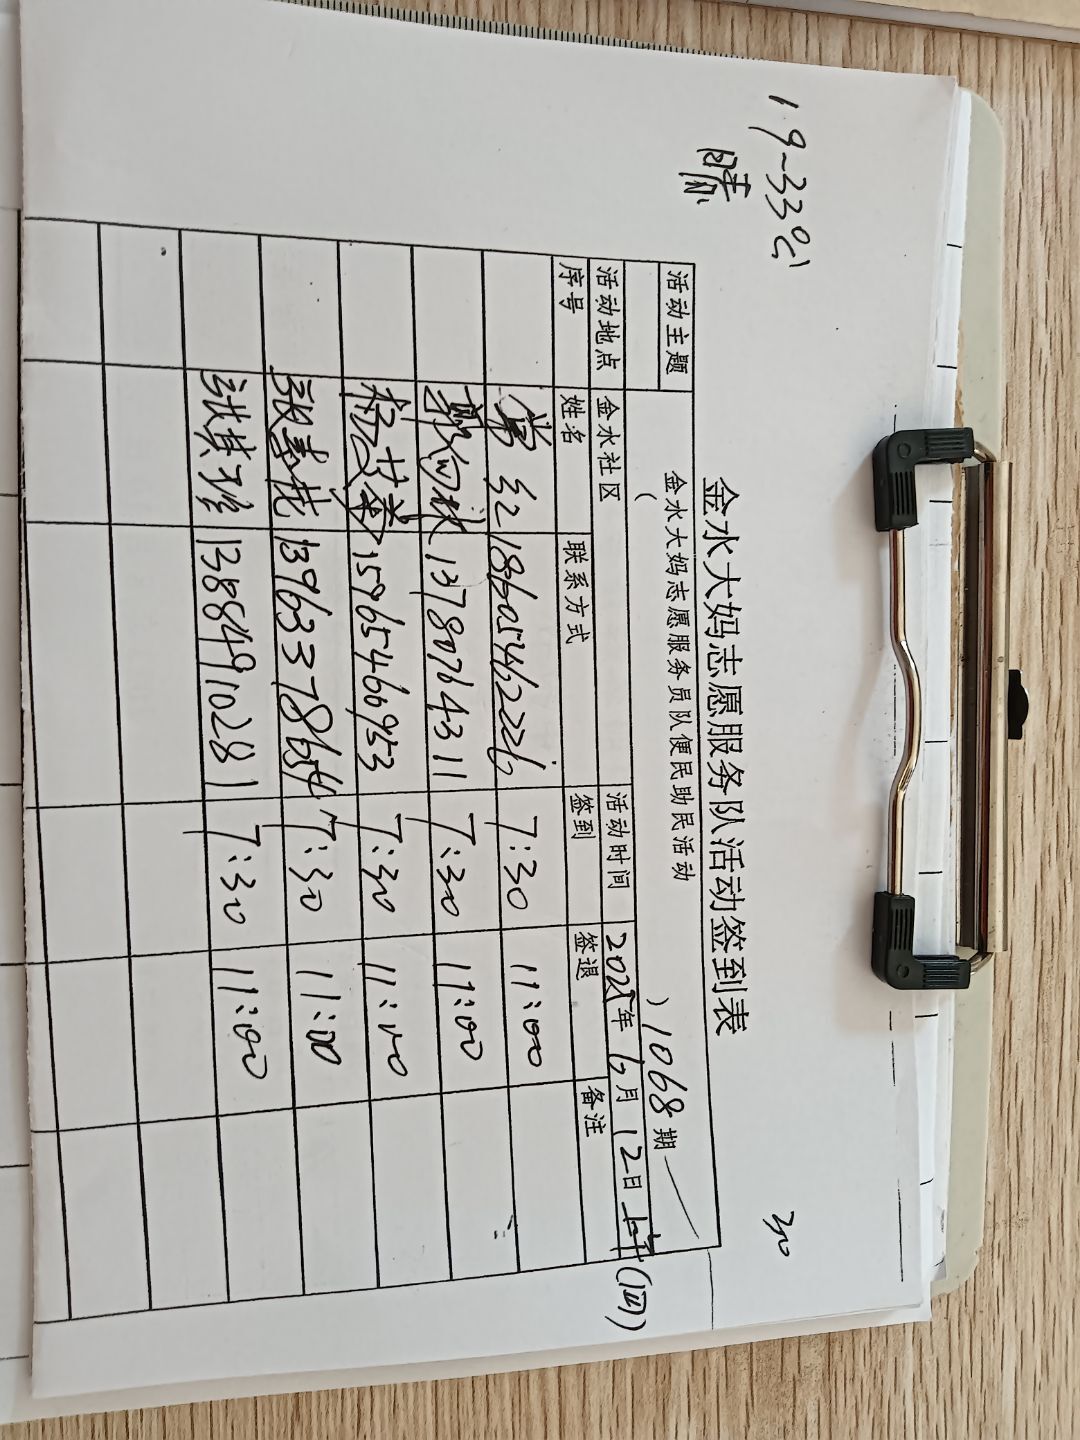 19-33℃
晴
30
金水大妈志愿服务队活动签到表
活动主题 ( 金水大妈志愿服务员队便民助民活动 ) 1068期
活动地点 金水社区 活动时间 2025年6月12日上午(四)
序号 姓名 联系方式 签到 签退 备注
常红 18605462226 7:30 11:00
13780764311 7:30 11:00
杨艾 15965460953 7:30 11:00
张春花 13963378654 7:30 11:00
张其珍 13884910281 7:30 11:00